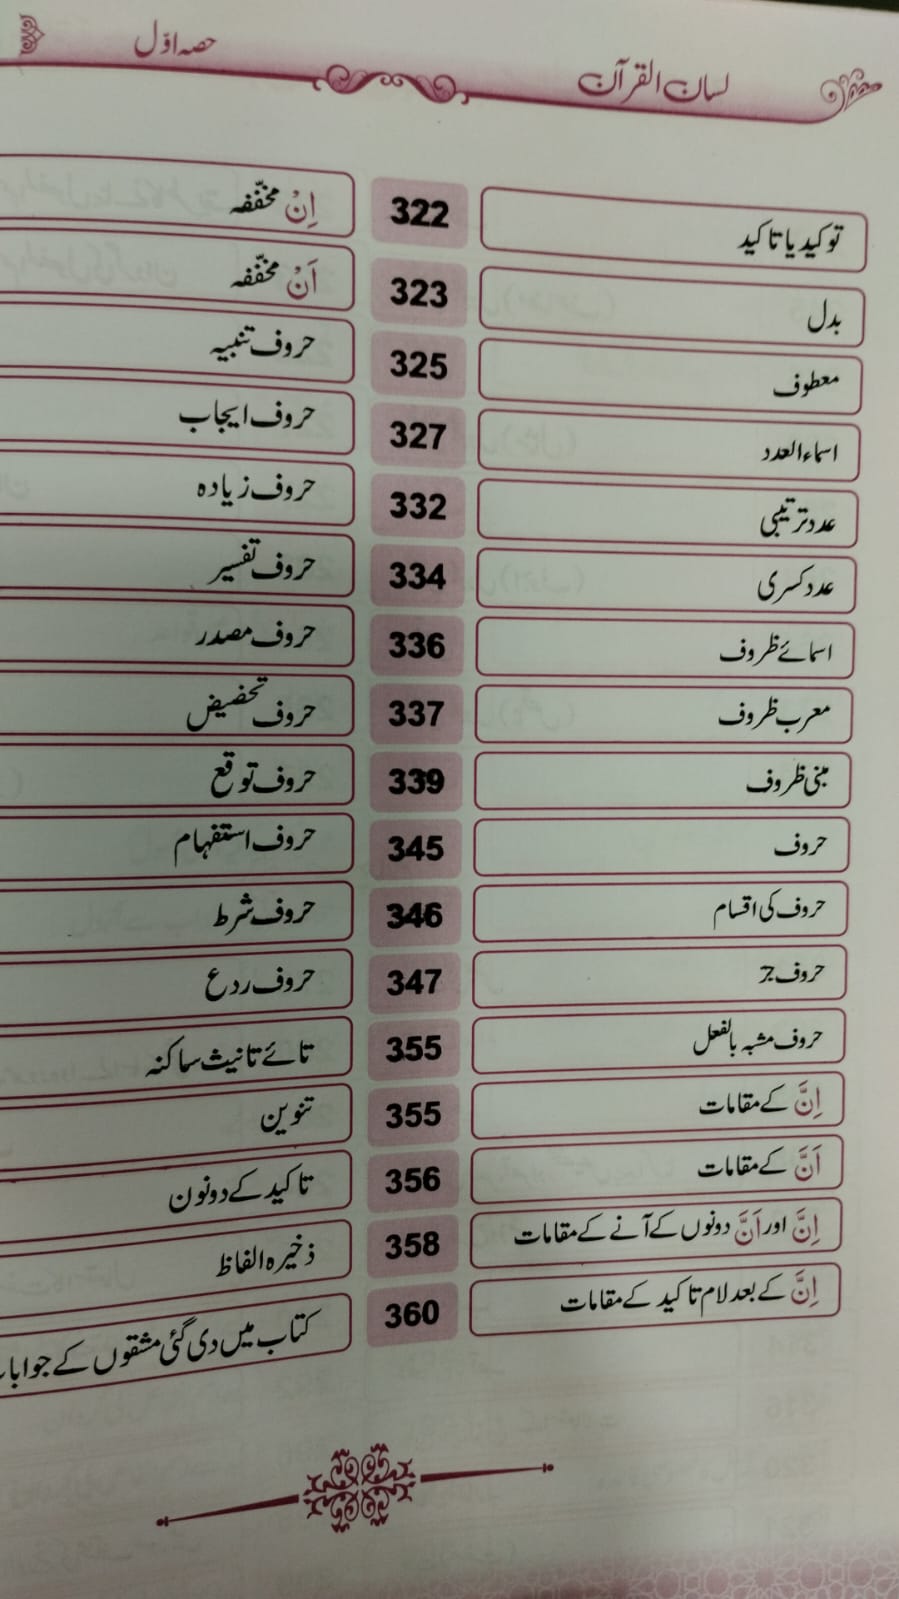 لسان القرآن
حصہ اوّل
توکید یا تاکید 322
بدل 323
معطوف 325
اسماء العدد 327
عدد ترتیبی 332
عدد کسری 334
اسمائے ظروف 336
معرب ظروف 337
مبنی ظروف 339
حروف 345
حروف کی اقسام 346
حروف جر 347
حروف مشبہ بالفعل 355
اِنَّ کے مقامات 355
اَنَّ کے مقامات 356
اِنَّ اور اَنَّ دونوں کے آنے کے مقامات 358
اِنَّ کے بعد لام تاکید کے مقامات 360
اِنْ مخفّفہ
اَنْ مخفّفہ
حروف تنبیہ
حروف ایجاب
حروف زیادہ
حروف تفسیر
حروف مصدر
حروف تحضیض
حروف توقع
حروف استفہام
حروف شرط
حروف ردع
تائے تانیث ساکنہ
تنوین
تاکید کے دو نون
ذخیرہ الفاظ
کتاب میں دی گئی مشقوں کے